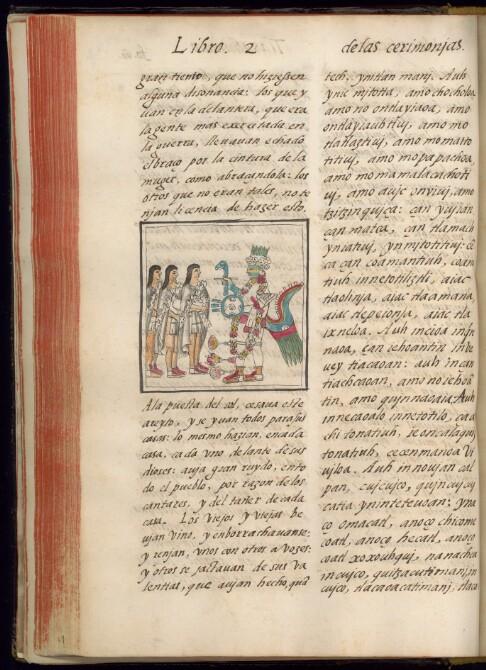 Libro. 2
de las cerimonjas.
gran tiento, que no hiziessen
alguna disonancia: los que y
uan en la delantera, que era
la gente mas exercitada en
la guerra, lleuauan echado
el braço por la cintura de la
muger, como abraçandola: los
otros que no eran tales, no te
njan licencia de hazer esto.
A la puesta del sol, cesaua este
areyto, y se yuan todos para sus
casas: lo mesmo hazian, en cada
casa, cada vno delante de sus
dioses: auja gran ruydo, en to
do el pueblo, por razon de los
cantares, y del tañer de cada
casa. Los viejos y viejas be
ujan vino, y enborrachauanse:
y renjan, vnos con otros a vozes:
y otros se jactauan de sus va
lentias, que aujan hecho, quã
tech, ynitlan manj. Auh
ynic mitotia, amo chocholoa
amo no ontlayiaoa, amo
ontlayiauhtiuj, amo mo
tlatlaztiuj, amo momaito
titiuj, amo mopapachoa,
amo momamalacachoti
uj, amo auic onviuj, amo
tzitzinquiça: çan yuian
çan matca, çan tlamach
yncatiuj, ynmitotitiuj: ce
ca çan coamantiuh, coan
tiuh innetotiliztli, aiac
tlaolinja, aiac tlaamana
aiac tlepetonja, aiac tla
ixneloa. Auh incioa
naoa, çan iehoantin
uey tiacaoan: auh
tiachcaoan, amo
tin, amo quinnacaia. Auh
innecaoalo innetotilo,
chi tonatiuh, ie oncalaquj
tonatiuh, cecenmanoa Vi
uiloa. Auh innoujan cal
pan, cujcujco,
catia yninteteuoan:
co omacatl, anoço chicome
coatl, anoço hecatl, anoço
coatl xoxouhquj,
incujco,
cujco, tlacaoacatimanj, tlaca